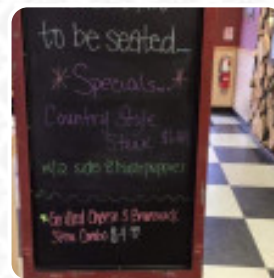 to be seated...
*Specials...*
Country Style
Steak
w/2 sides & hushpuppies
*Grilled Cheese & Brunswick
Stew Combo $4